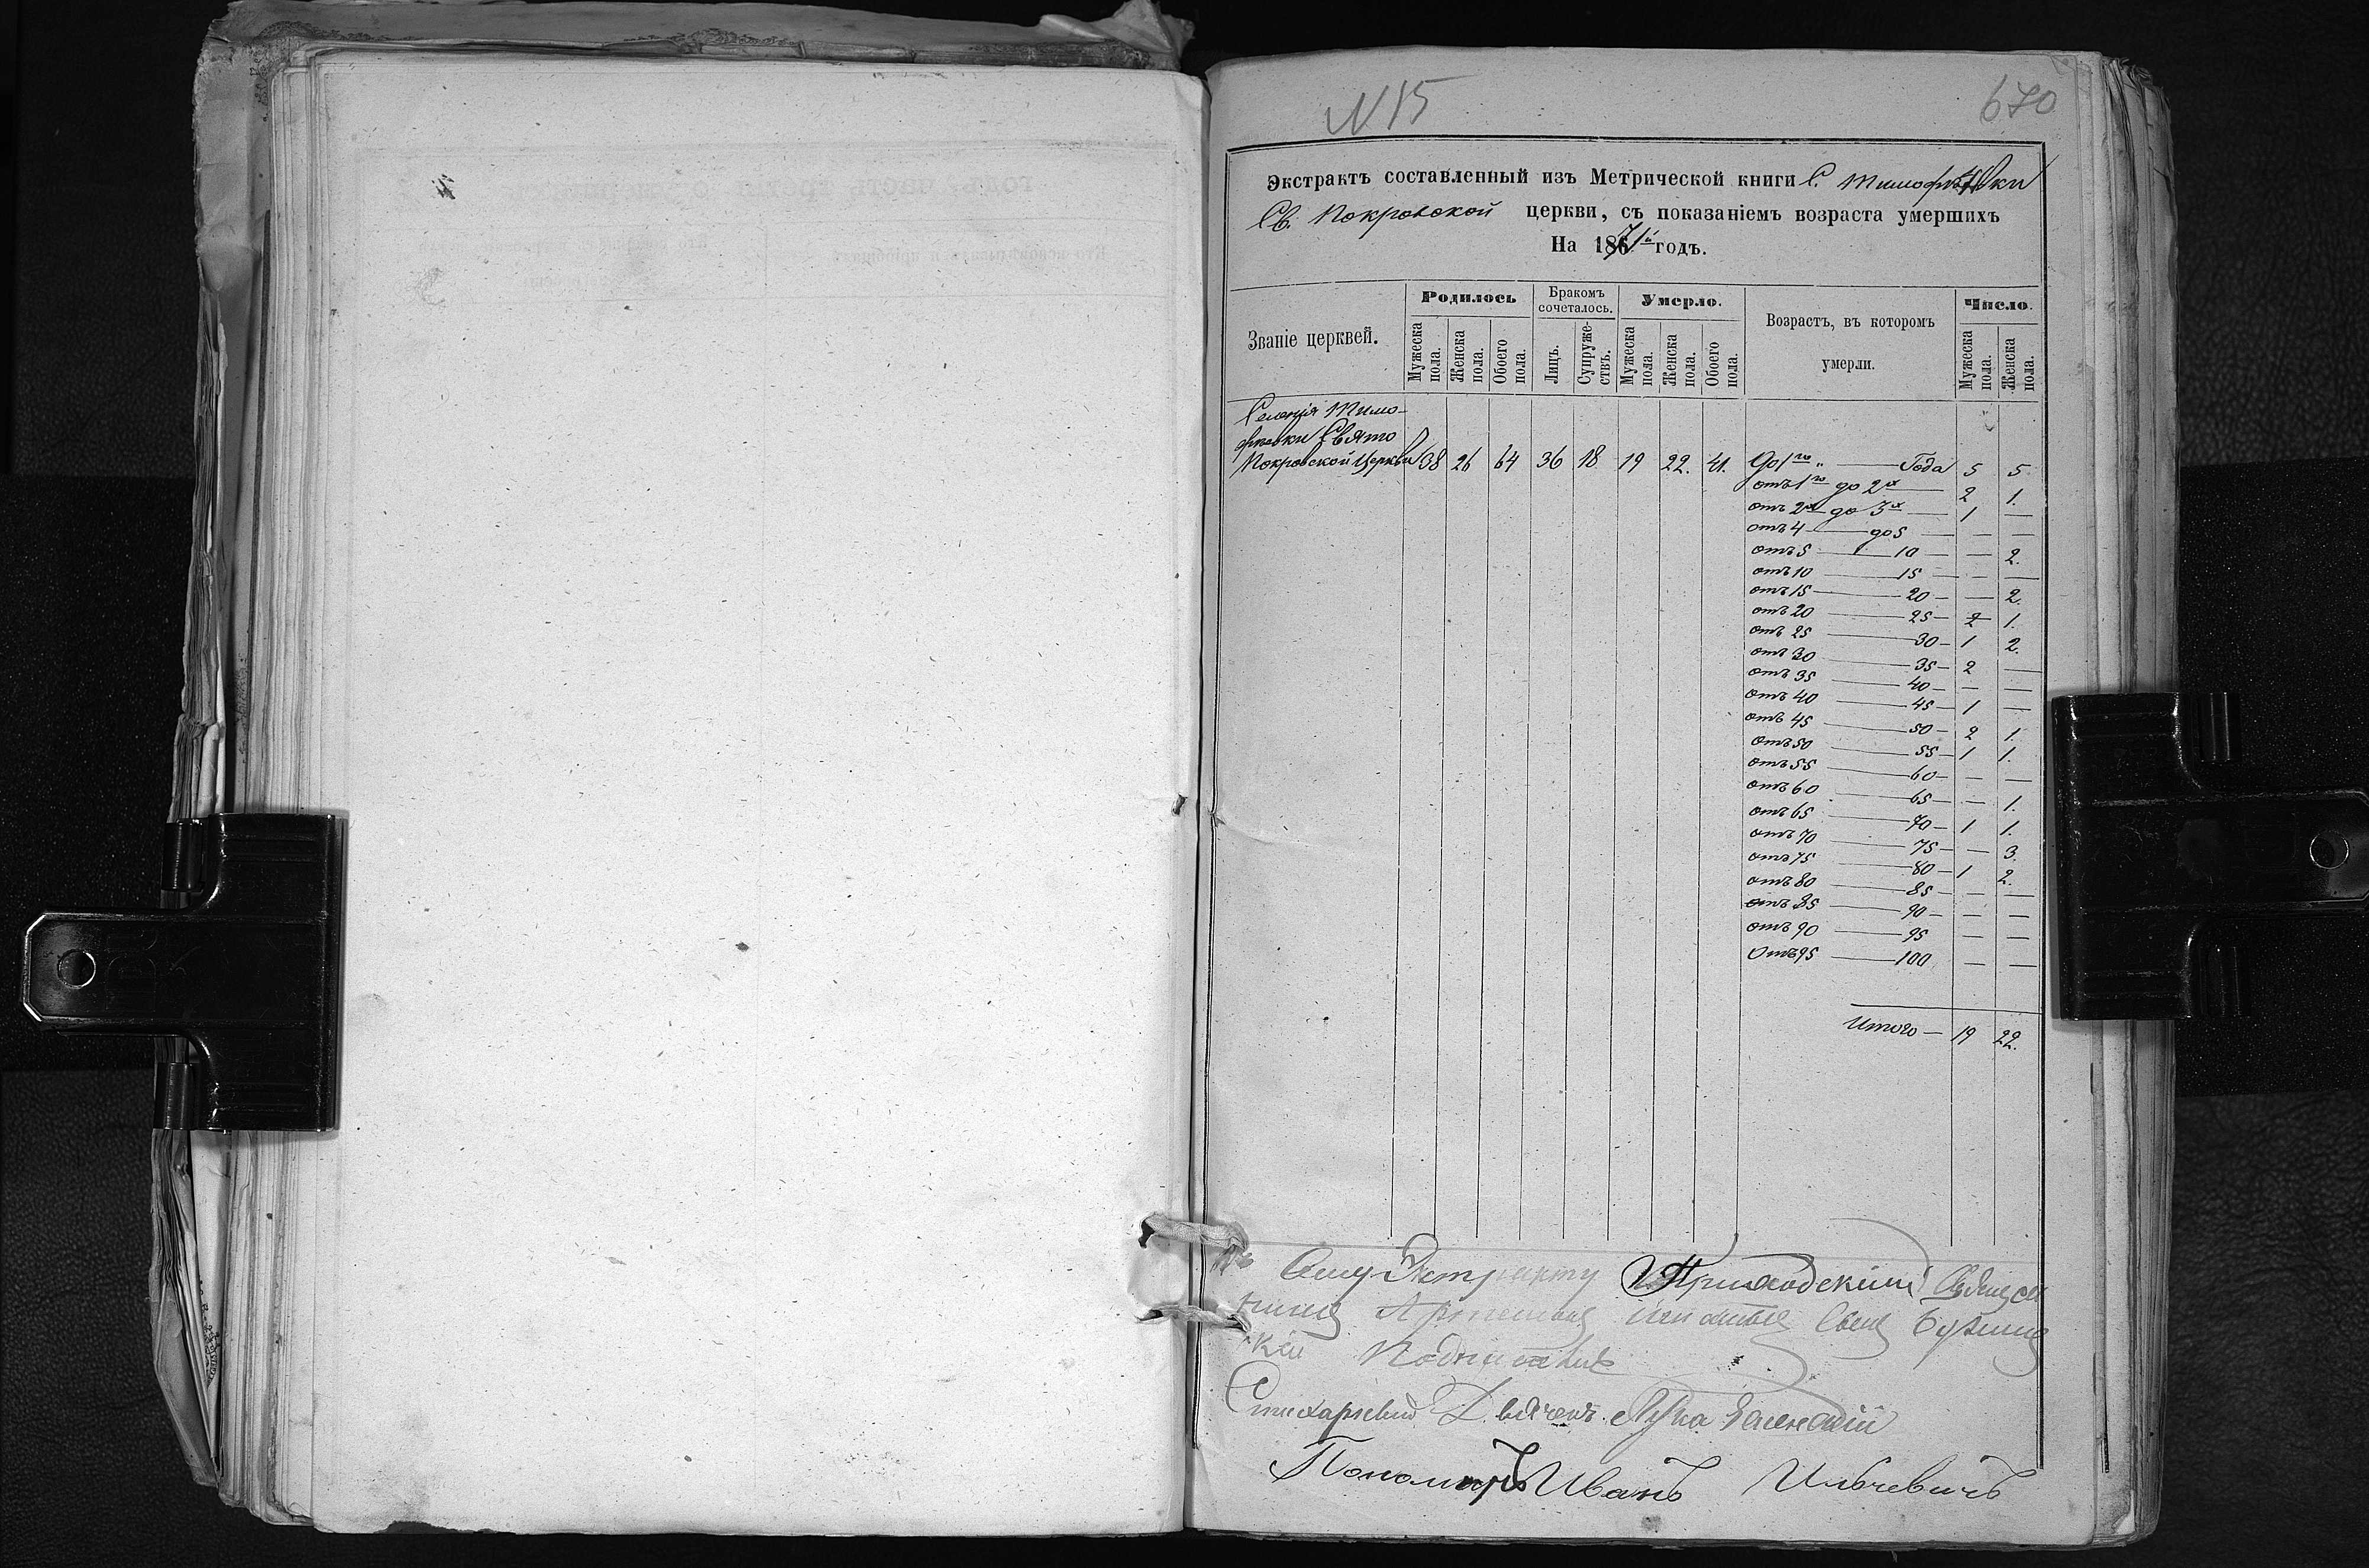 N 15
670
Экстрактъ составленный изъ Метрической книги С. Тимофѣевки
Св. Покровской церкви, съ показаніемъ возраста умершихъ
На 1871й годъ.
Званіе церквей. Родилось Бракомъ сочеталось. Умерло. Возрастъ, въ которомъ умерли. Число.
Мужеска пола. Женска пола. Обоего пола. Лицъ. Супружествъ. Мужеска пола. Женска пола. Обоего пола. Мужеска пола. Женска пола.
Селенія Тимо-
фѣевки Свято
Покровской Церкви 38 26 64 36 18 19 22. 41. До 1го " — Года 5 5.
отъ 1го до 2х — 2 1.
отъ 2х до 3х — 1 —
отъ 4 — до 5 — — —
отъ 5 — 10 — — 2.
отъ 10 — 15 — — —
отъ 15 — 20 — — 2.
отъ 20 — 25 — 2 1.
отъ 25 — 30 — 1 2.
отъ 30 — 35 — 2 —
отъ 35 — 40 — — —
отъ 40 — 45 — 1 —
отъ 45 — 50 — 2 1.
отъ 50 — 55 — 1 1.
отъ 55 — 60 — — —
отъ 60 — 65 — — 1.
отъ 65 — 70 — 1 1.
отъ 70 — 75 — — 3.
отъ 75 — 80 — 1 2.
отъ 80 — 85 — — —
отъ 85 — 90 — — —
отъ 90 — 95 — —
Отъ 95 — 100 — —
Итого — 19 22.
Приходскій
Дьячокъ Лука
Пономарь Иванъ Ильчевичъ